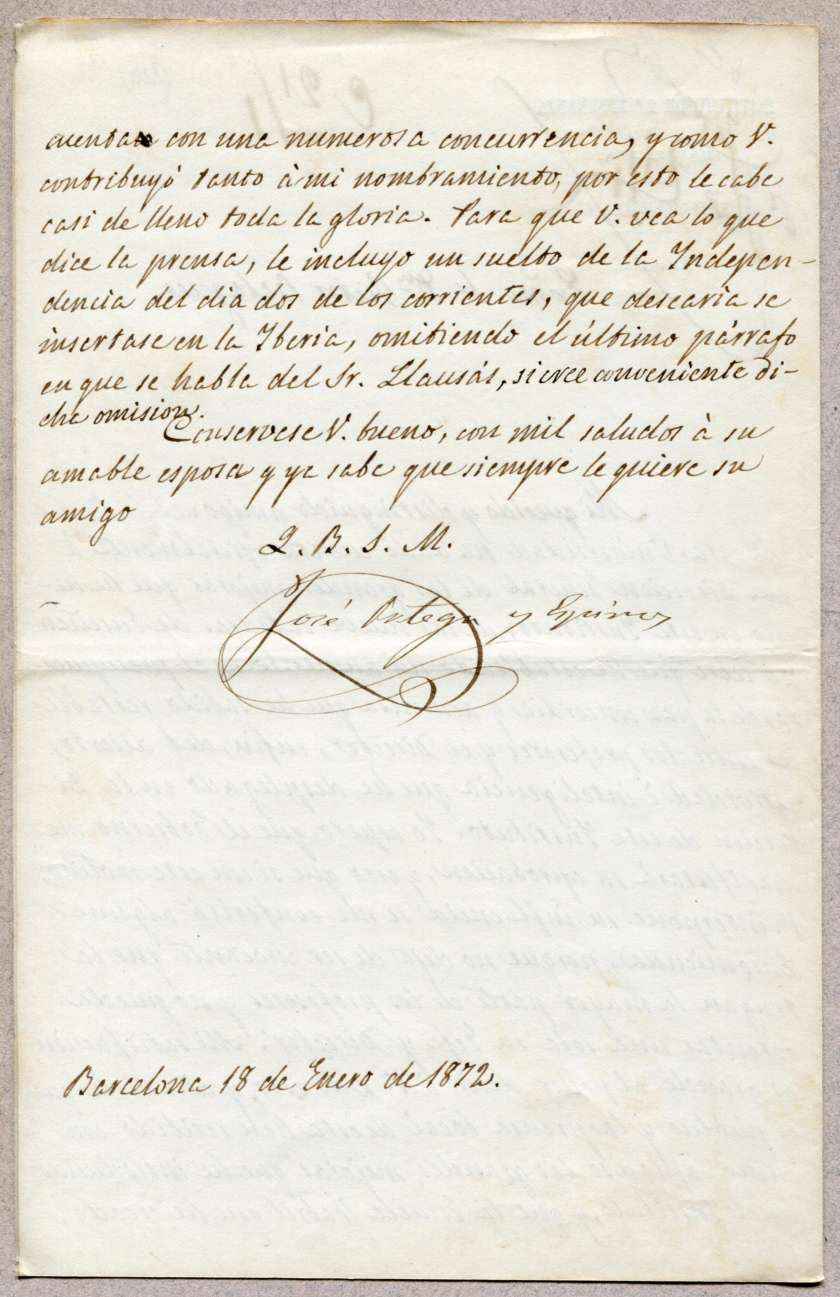 cuentan con una numerosa concurrencia, y como V.
contribuyó tanto à mi nombramiento, por esto le cabe
casi de lleno toda la gloria. Para que V. vea lo que
dice la prensa, le incluyo un suelto de la Indepen-
dencia del dia dos de los corrientes, que desearia se
insertase en la Iberia, omitiendo el último párrafo
en que se habla del Sr. Llausás, si cree conveniente di-
cha omision.
Conservese V. bueno, con mil saludos à su
amable esposa y ya sabe que siempre le quiere su
amigo
Q. B. S. M.
José Ortega y Espinos
Barcelona 18 de Enero de 1872.